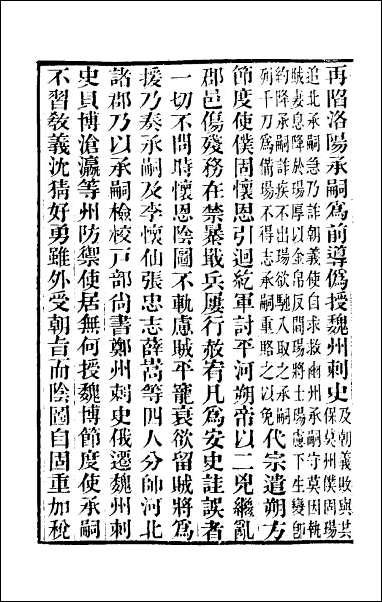 再陷洛陽承嗣爲前導僞授魏州刺史
及朝義敗與共
保莫州僕固瑒
追北承嗣急乃詐朝義使自求救幽州承嗣守莫因執
賊妻息降於瑒厚以金帛反間瑒將士瑒慮下生變卽
約降承嗣詐疾不出瑒欲馳入取之承嗣
列千刀爲備瑒不得志承嗣重賂之以免
代宗遣朔方
節度使僕固懷恩引迴紇軍討平河朔帝以二兇繼亂
郡邑傷殘務在禁暴戢兵屢行赦宥凡爲安史詿誤者
一切不問時懷恩陰圖不軌慮賊平寵衰欲留賊將爲
援乃奏承嗣及李懷仙張忠志薛嵩等四人分帥河北
諸郡乃以承嗣檢校戸部尚書鄭州刺史俄遷魏州刺
史貝博滄瀛等州防禦使居無何授魏博節度使承嗣
不習敎義沈猜好勇雖外受朝旨而陰圖自固重加稅